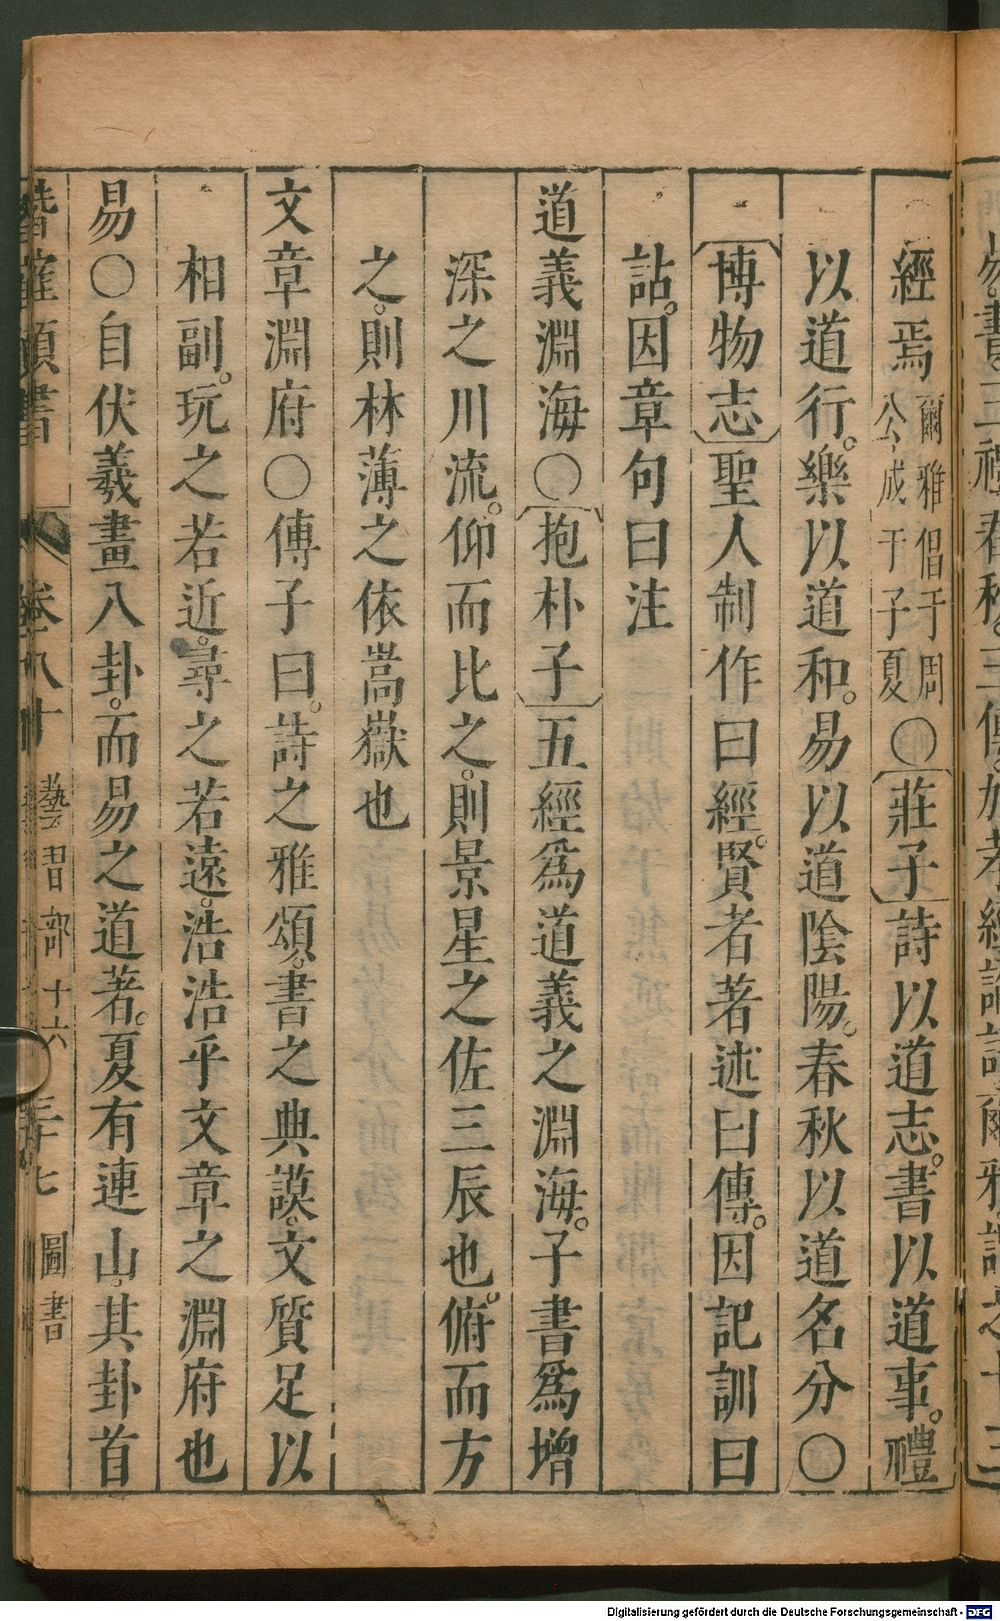 經焉爾雅倡于周公成于子夏〇莊子詩以道志。書以道事。禮
以道行。樂以道和。易以道陰陽。春秋以道名分〇
博物志聖人制作曰經。賢者著述曰傳。因記訓曰
詁。因章句曰注
道義淵海〇抱朴子五經爲道義之淵海。子書爲增
深之川流。仰而比之。則景星之佐三辰也。俯而方
之。則林薄之依嵩嶽也
文章淵府〇傅子曰。詩之雅頌。書之典謨。文質足以
相副。玩之若近。尋之若遠。浩浩乎文章之淵府也
易〇自伏羲畫八卦。而易之道著。夏有連山。其卦首
卷八十 藝習部十六 圖書
Digitalisierung gefördert durch die Deutsche Forschungsgemeinschaft - DFG